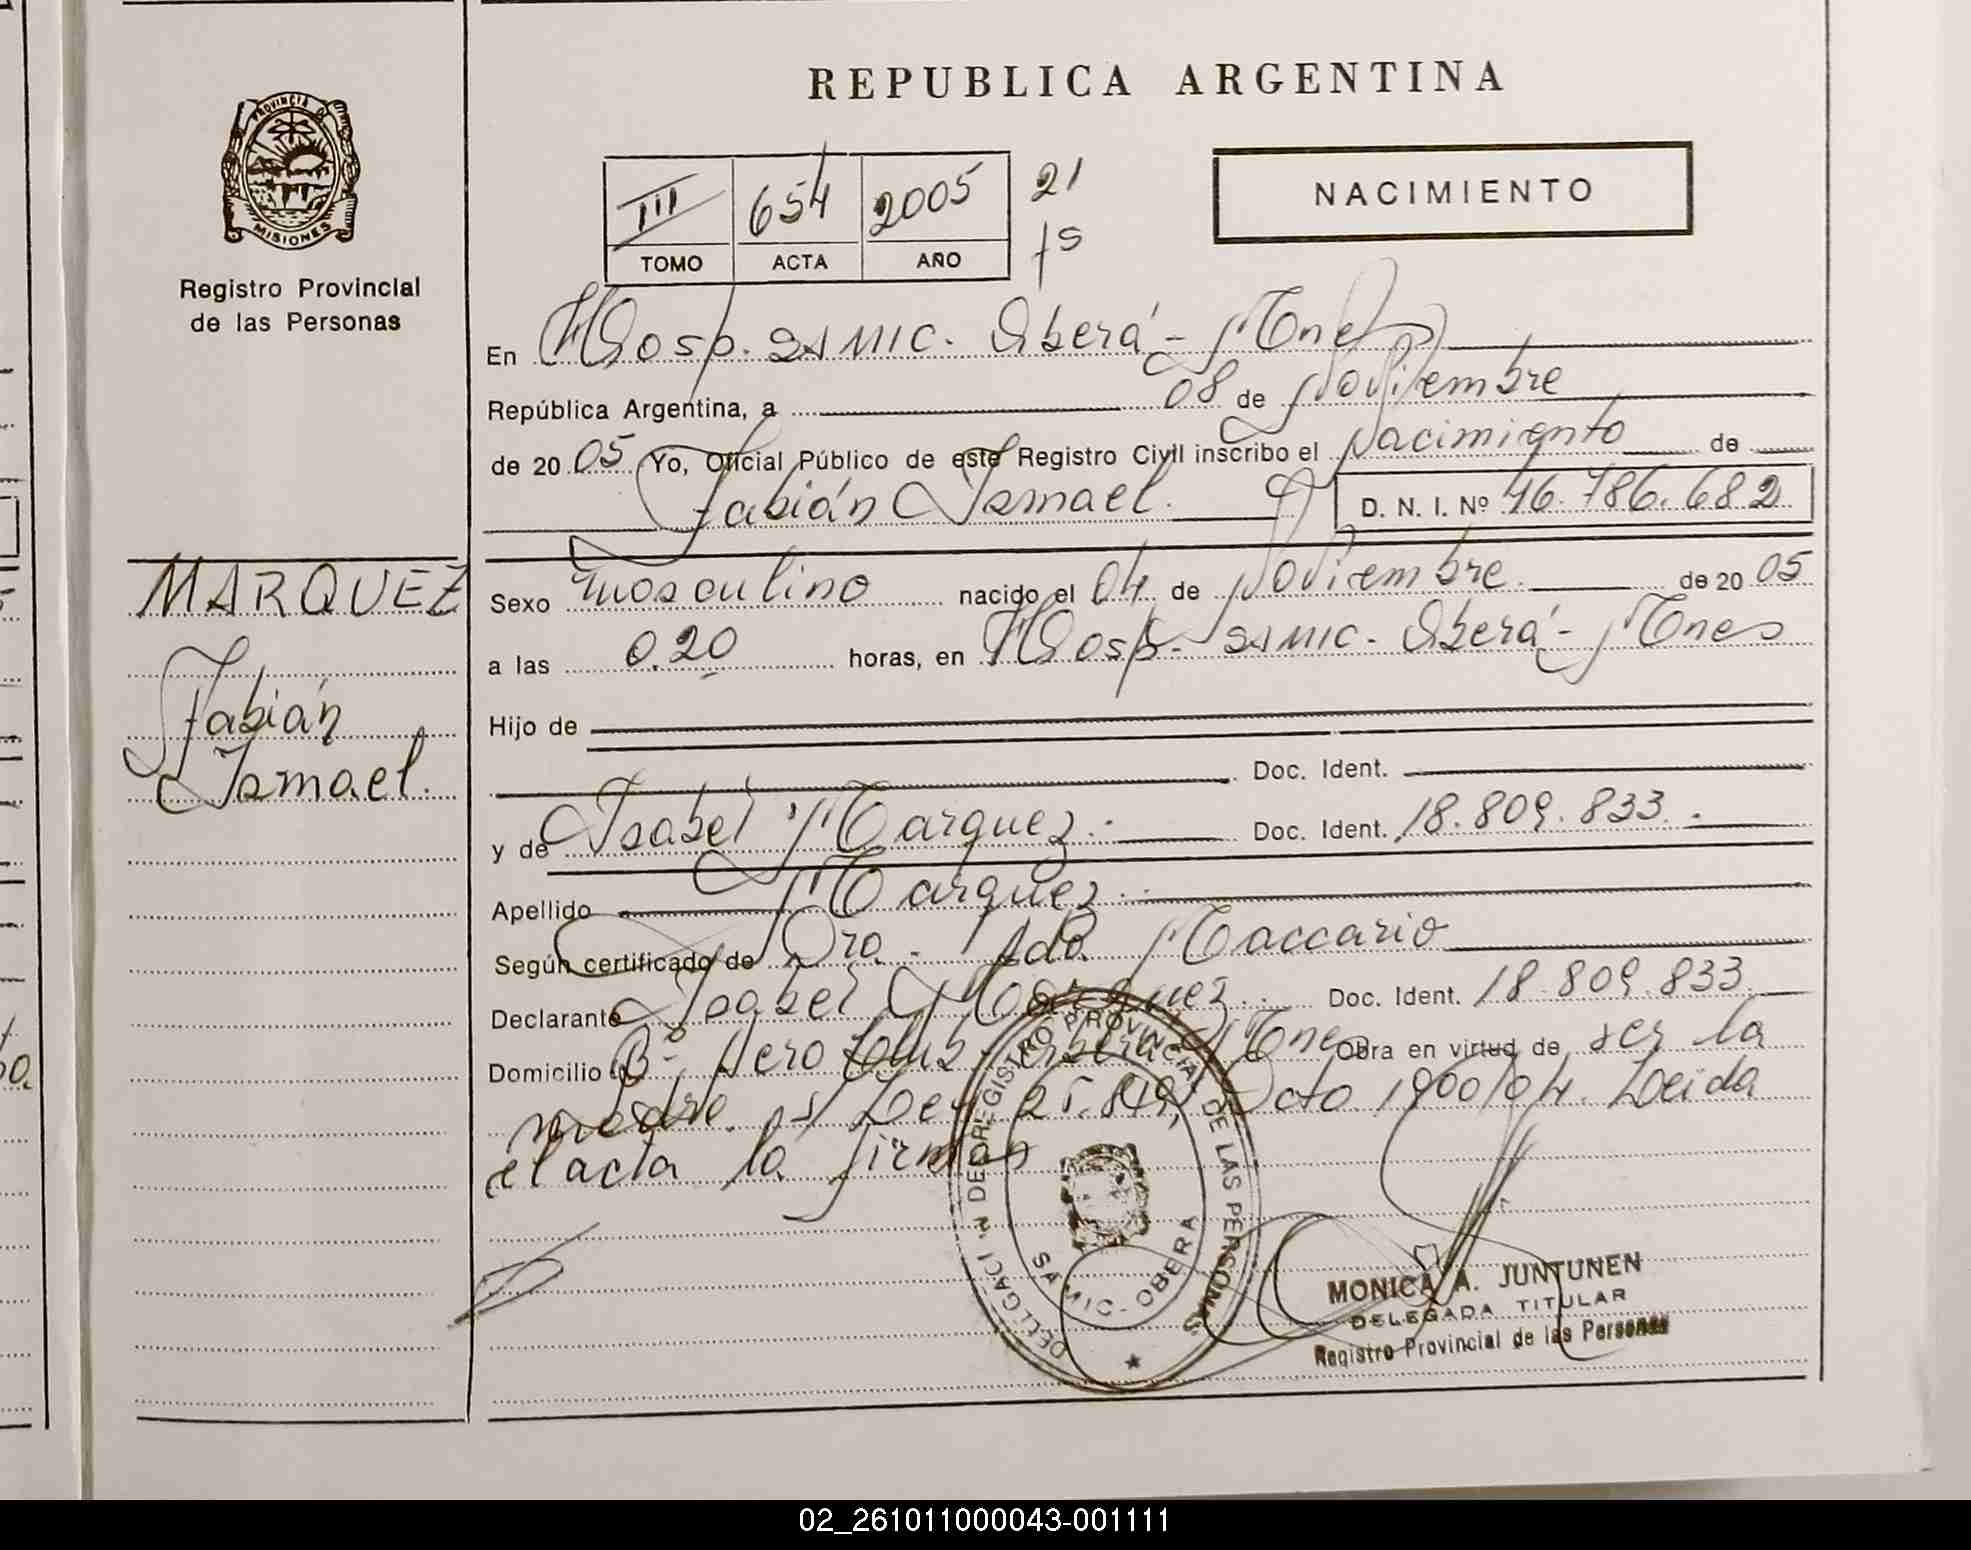 REPUBLICA ARGENTINA
PROVINCIA DE
MISIONES
Registro Provincial
de las Personas
III 654 2005 21
TOMO ACTA AÑO fs
NACIMIENTO
En Hosp. SAMIC. Oberá - Mnes
República Argentina, a 08 de Noviembre
de 20 05 Yo, Oficial Público de este Registro Civil inscribo el Nacimiento de
Fabián Ismael. D. N. I. Nº 46.786.682
MARQUEZ
Fabián
Ismael.
Sexo masculino nacido el 04 de Noviembre de 20 05
a las 0.20 horas, en Hosp. SAMIC - Oberá - Mnes
Hijo de
Doc. Ident.
y de Isabel Marquez.- Doc. Ident. 18.809.833.-
Apellido Marquez.-
Según certificado de Dra. Ada Maccario
Declarante Isabel Marquez.- Doc. Ident. 18.809.833
Domicilio Bº Aero Club Oberá Mnes Obra en virtud de ser la
madre. s/ Ley 25.819, Dcto 1900/04. Leida
el acta la firman
REGISTRO PROVINCIAL DE LAS PERSONAS
SAMIC - OBERA
MONICA A. JUNTUNEN
DELEGADA TITULAR
Registro Provincial de las Personas
02_261011000043-001111